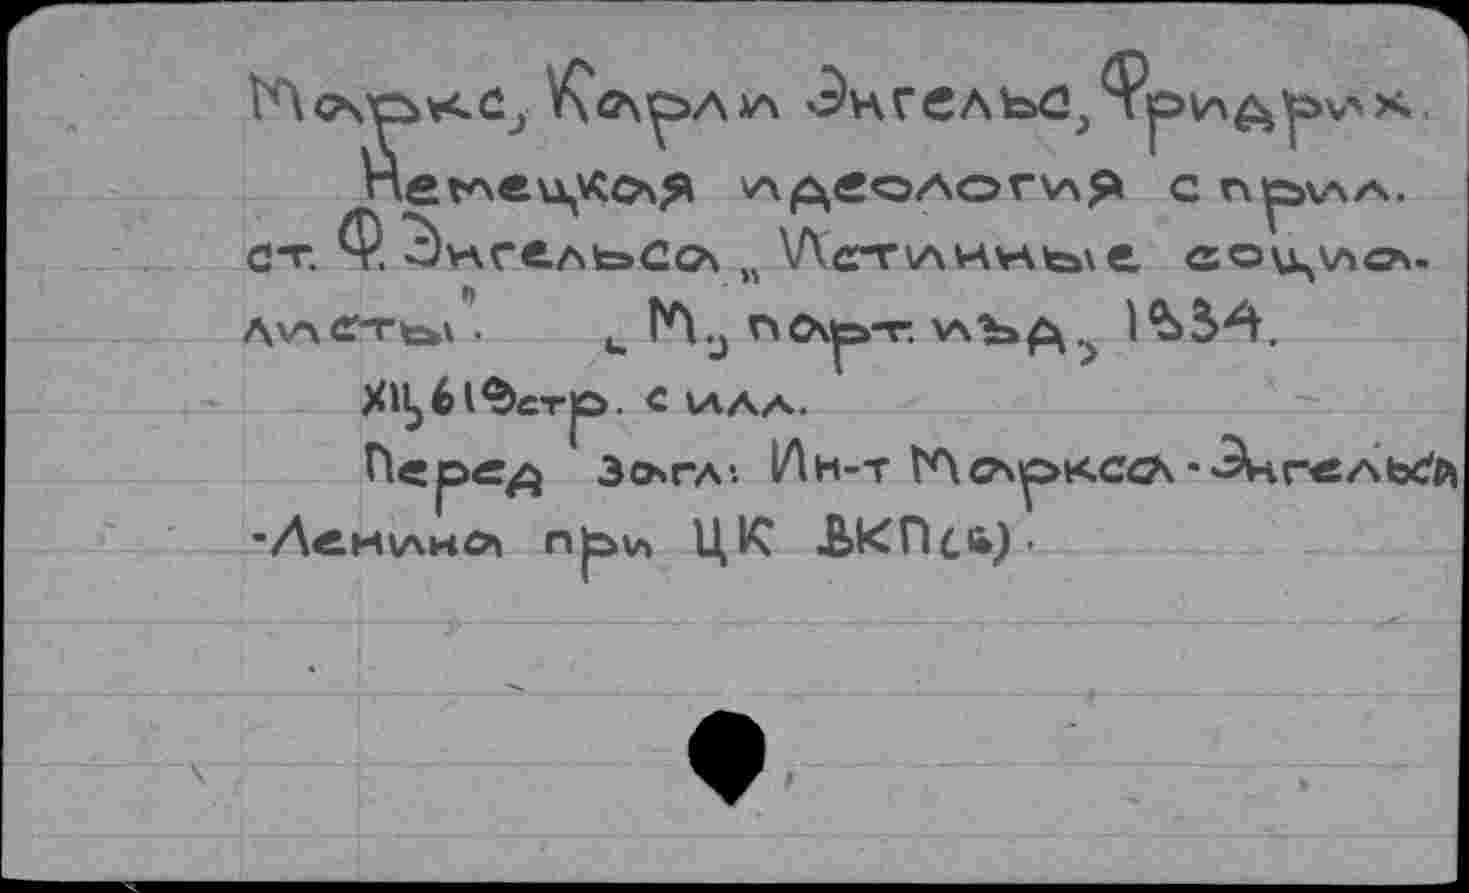 Маркс, Карл и Энгельс, Фридрих.
Немецкая идеология с прил.
ст. Ф. Энгельса „Истинные социа-
листы". М., парт. изд., 1934.
XII, 619стр. с илл.
Перед загл: Ин-т Маркса-Энгельса
-Ленина при ЦК ВКП(б).